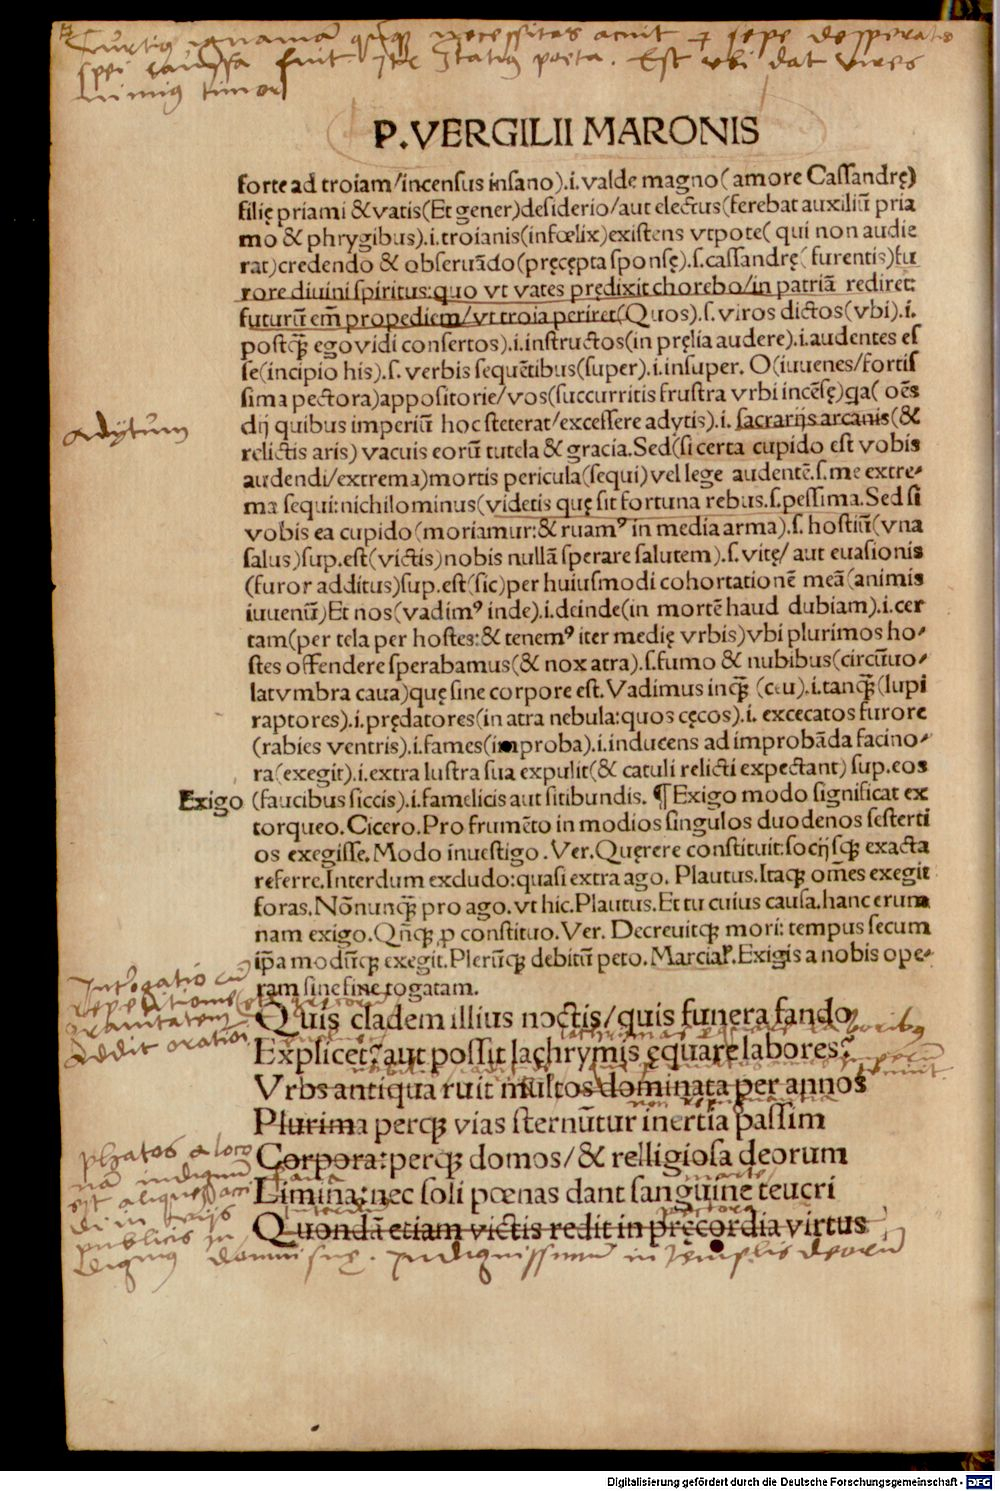 Curtius ignaviam quoque necessitas acuit et sepe desperatio
spei caussa fuit Itē Statius poeta. Est ubi dat vires
nimius timor
P.VERGILII MARONIS
forte ad troiam/incensus insano).i.valde magno( amore Cassandrę)
filię priami & vatis(Et gener)desiderio/aut electus(ferebat auxiliū pria
mo & phrygibus).i.troianis(infœlix)existens vtpote( qui non audie
rat)credendo & obseruādo(pręcępta sponsę).s.cassandrę( furentis)fu
rore diuini spiritus:quo vt vates prędixit chorebo/in patriā rediret:
futurū em̄ propediem/vt troia periret(Quos).s.viros dictos(vbi).i.
postq̄ȝ ego vidi consertos).i.instructos(in pręlia audere).i.audentes es
se(incipio his).s. verbis sequētibus(super).i.insuper. O(iuuenes/fortis
sima pectora)appositorie/vos(succurritis frustra vrbi incēsę)qa( oēs
dij quibus imperiū hoc steterat/excessere adytis).i. sacrarijs arcanis(&
relictis aris) vacuis eorū tutela & gracia.Sed(si certa cupido est vobis
audendi/extrema)mortis pericula(sequi)vel lege audentē.s.me extre-
ma sequi:nichilominus(videtis quę sit fortuna rebus.s.pessima.Sed si
vobis ea cupido(moriamur:& ruamꝰ in media arma).s. hostiū(vna
salus)sup.est(victis)nobis nullā sperare salutem).s.vitę/ aut euasionis
(furor additus)sup.est(sic)per huiusmodi cohortationē meā(animis
iuuenū)Et nos(vadimꝰ inde).i.deinde(in mortē haud dubiam).i.cer
tam(per tela per hostes:& tenemꝰ iter medię vrbis)vbi plurimos ho-
stes offendere sperabamus(& nox atra).s.fumo & nubibus(circūuo-
lat vmbra caua)quę sine corpore est.Vadimus inq̄ȝ (ceu).i.tanq̄ȝ(lupi
raptores).i.prędatores(in atra nebula:quos cęcos).i. excecatos furore
(rabies ventris).i.fames(improba).i.inducens ad improbāda facino-
ra(exegit).i.extra lustra sua expulit(& catuli relicti expectant) sup.eos
Exigo (faucibus siccis).i.famelicis aut sitibundis. ¶Exigo modo significat ex
torqueo.Cicero.Pro frumēto in modios singulos duodenos sesterti
os exegisse.Modo inuestigo.Ver.Quęrere constituit:socijsqȝ exacta
referre.Interdum excludo:quasi extra ago. Plautus.Itaqȝ om̄es exegit
foras.Nōnunq̄ȝ pro ago.vt hic.Plautus.Et tu cuius causa.hanc erum
nam exigo.Qn̄qȝ ꝓ constituo.Ver. Decreuitqȝ mori: tempus secum
ip̄a modūqȝ exegit.Plerūqȝ debitū peto.Marcial̕.Exigis a nobis ope-
ram sine fine togatam.
Quis cladem illius noctis/quis funera fando
Explicet?aut possit lachrymis ęquare labores?
Vrbs antiqua ruit multos dominata per annos
Plurima perqȝ vias sternūtur inertia passim
Corpora:perqȝ domos/& relligiosa deorum
Limina:nec soli pœnas dant sanguine teucri
Quondā etiam victis redit in pręcordia virtus
adytum
Int'rogatio cū
repetitione
gravitatem
addit orationi
phatos a loco
nā indignū
est aliquē occi
di in vijs
publicis in
domini suę. Indignissimū in templis deorū